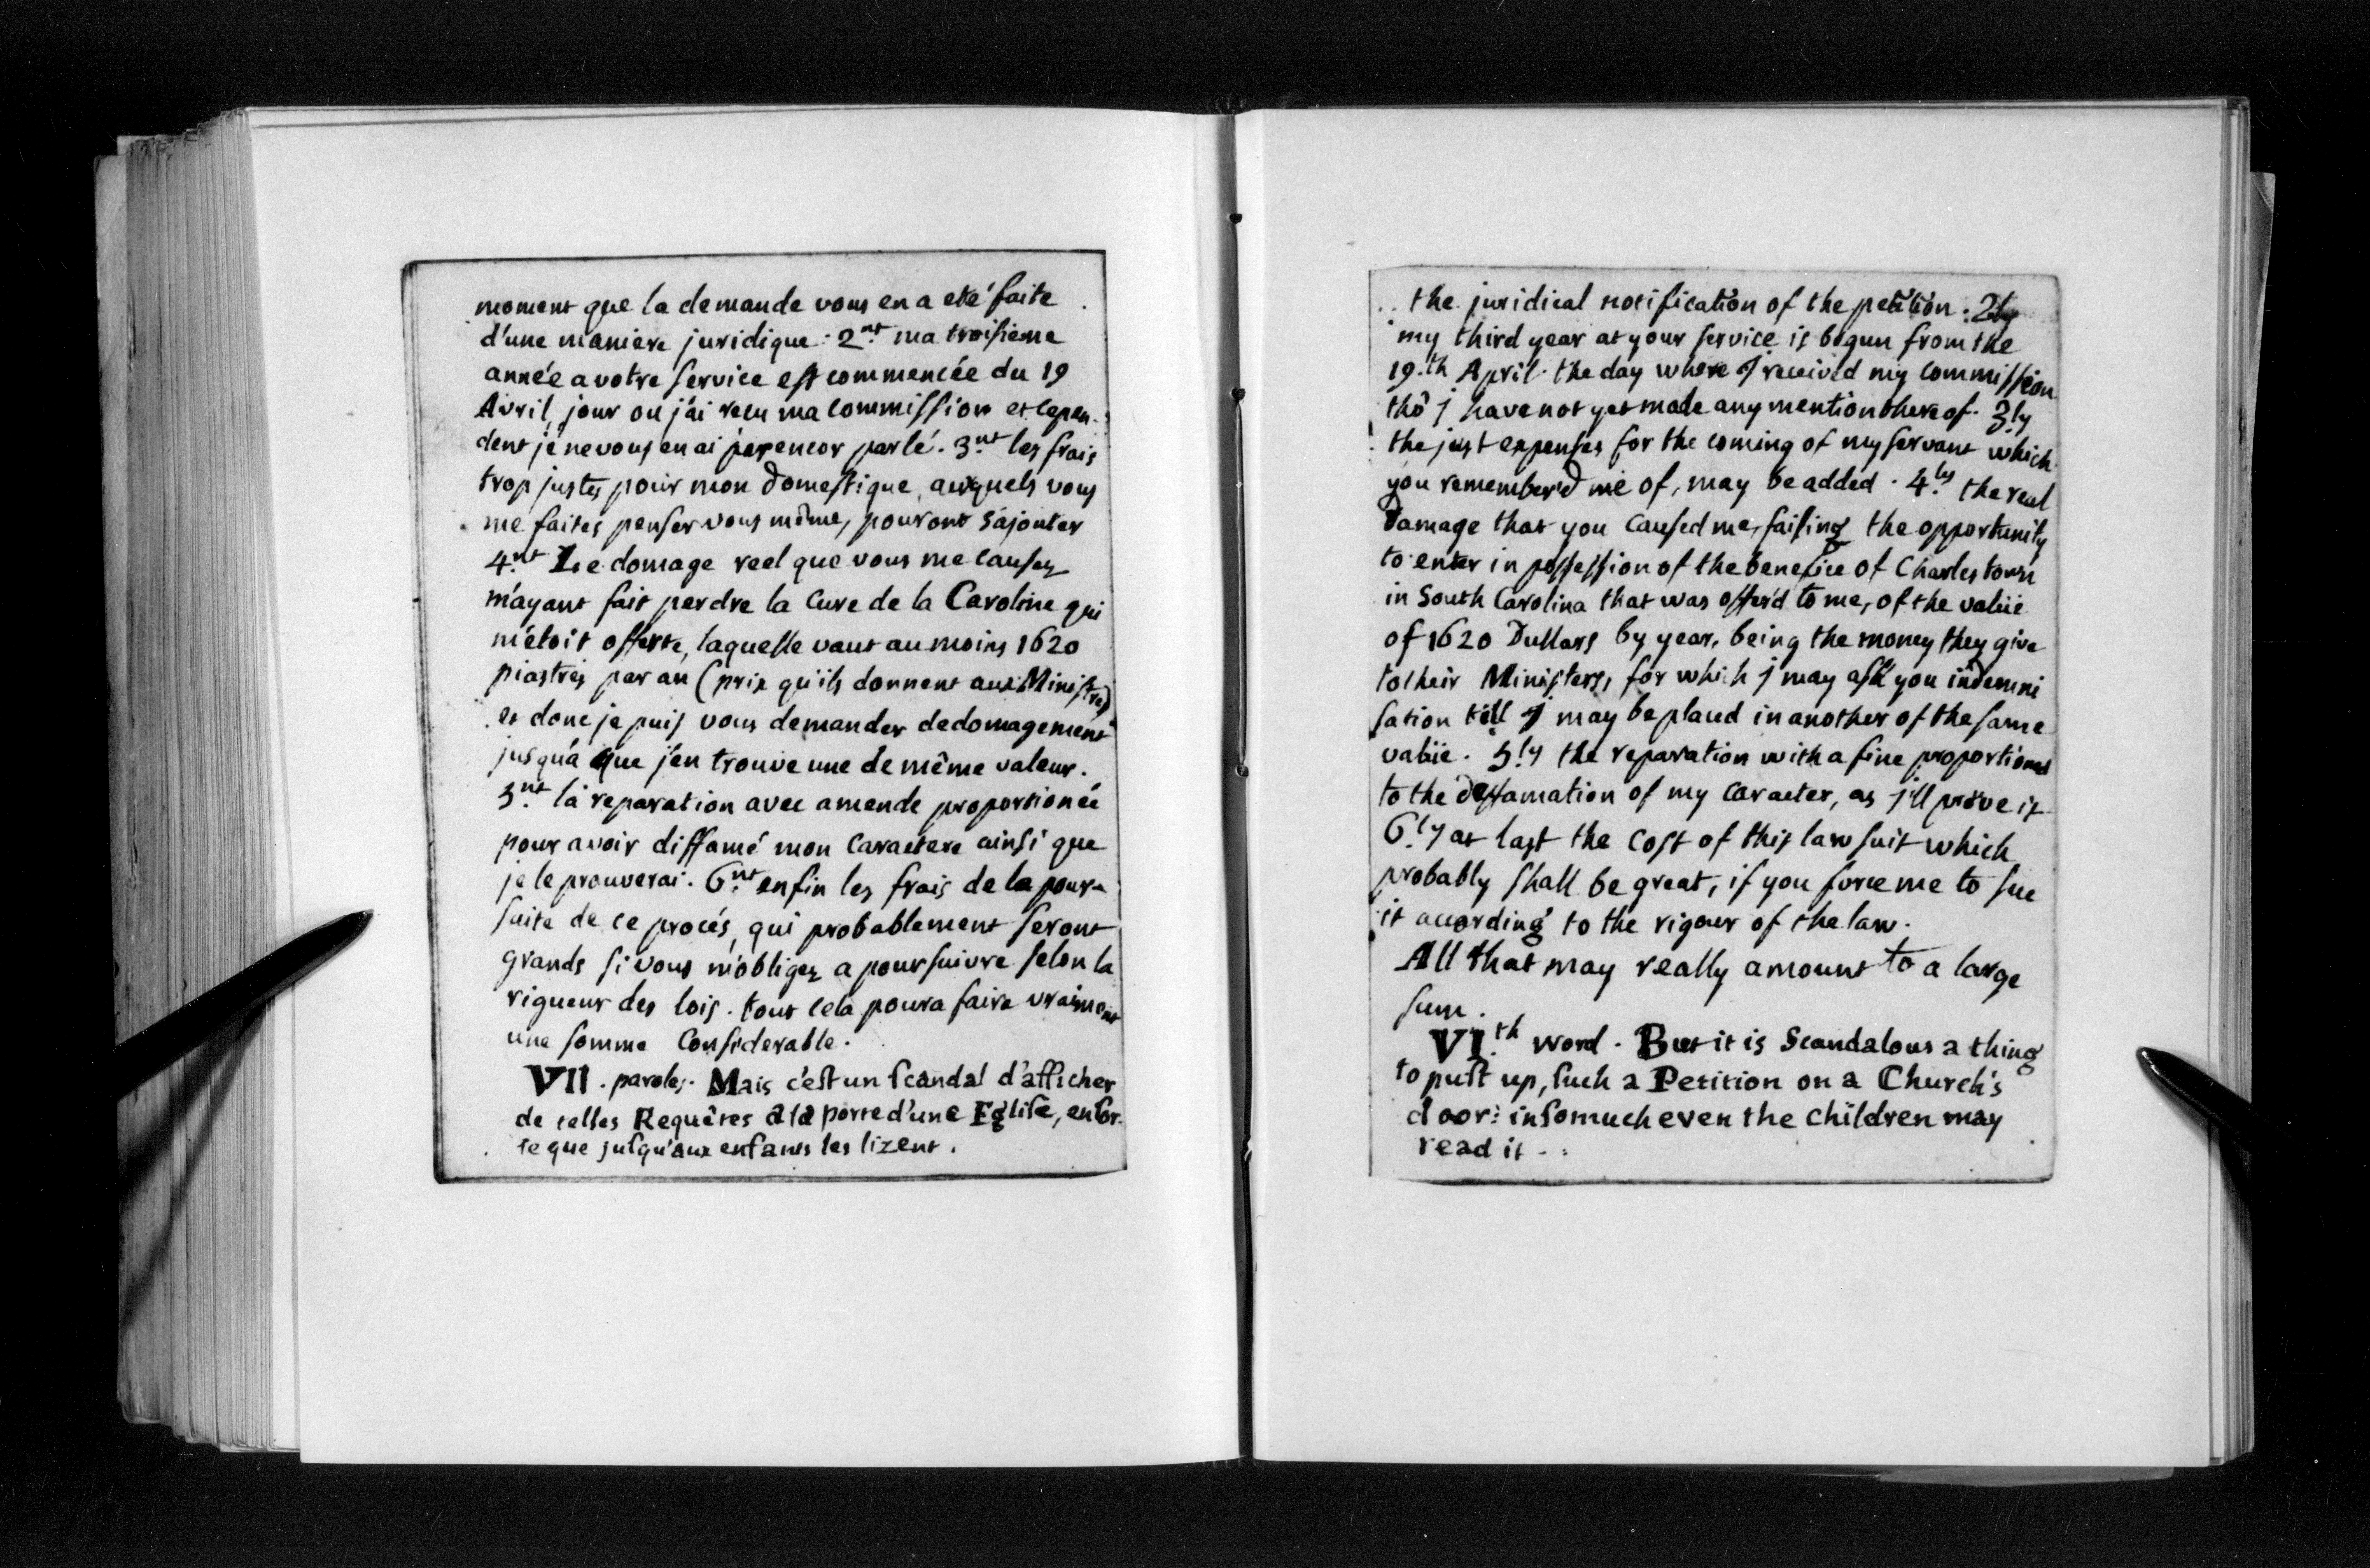 moment que la demande vous en a eté faite
d'une maniere juridique : 2.nt ma troisieme
année a votre service est commencée du 19
Avril, jour ou j'ai recu ma commission et cepen-
dent je ne vous en ai pas encor parlé. 3.nt les frais
trop justes pour mon domestique, auxquels vous
me faites penser vous même, pouront s'ajouter
4.nt Le domage reel que vous me causez
m'ayant fait perdre la Cure de la Caroline qui
m'étoit offerte, laquelle vaut au moins 1620
piastres par an (prix qu'ils donnent aux Ministres)
et donc je puis vous demander dedomagement
jusqu'a que j'en trouve une de même valeur.
5.nt la reparation avec amende proportionée
pour avoir diffamé mon caractere ainsi que
je le prouverai. 6.nt enfin les frais de la pour-
suite de ce procés, qui probablement seront
grands si vous m'obligez a poursuivre selon la
rigueur des lois. tout cela poura faire vraiment
une somme Considerable.
VII. paroles. Mais c'est un scandal d'afficher
de telles Requêtes à la porte d'une Eglise, ensor-
te que jusqu'aux enfants les lizent.
the juridical notification of the petition : 2ly
my third year at your service is begun from the
19.th April the day where J received my commission
thô j have not yet made any mention there of. 3.ly
the just expenses for the coming of my servant which
you remember'd me of, may be added. 4.ly the real
Damage that you caused me, failing the opportunity
to enter in possession of the benefice of Charlestown
in South Carolina that was offer'd to me, of the valüe
of 1620 Dullars by year, being the money they give
to their Ministers, for which j may ask you indemni
sation till J may be placed in another of the same
valüe. 5.ly the reparation with a fine proportioned
to the deffamation of my caracter, as j'll prove it
6.ly at last the cost of this law suit which
probably shall be great, if you force me to sue
it according to the rigour of the law.
All that may really amount to a large
sum.
VI.th word. But it is Scandalous a thing
to putt up, such a Petition on a Church's
door: insomuch even the children may
read it.